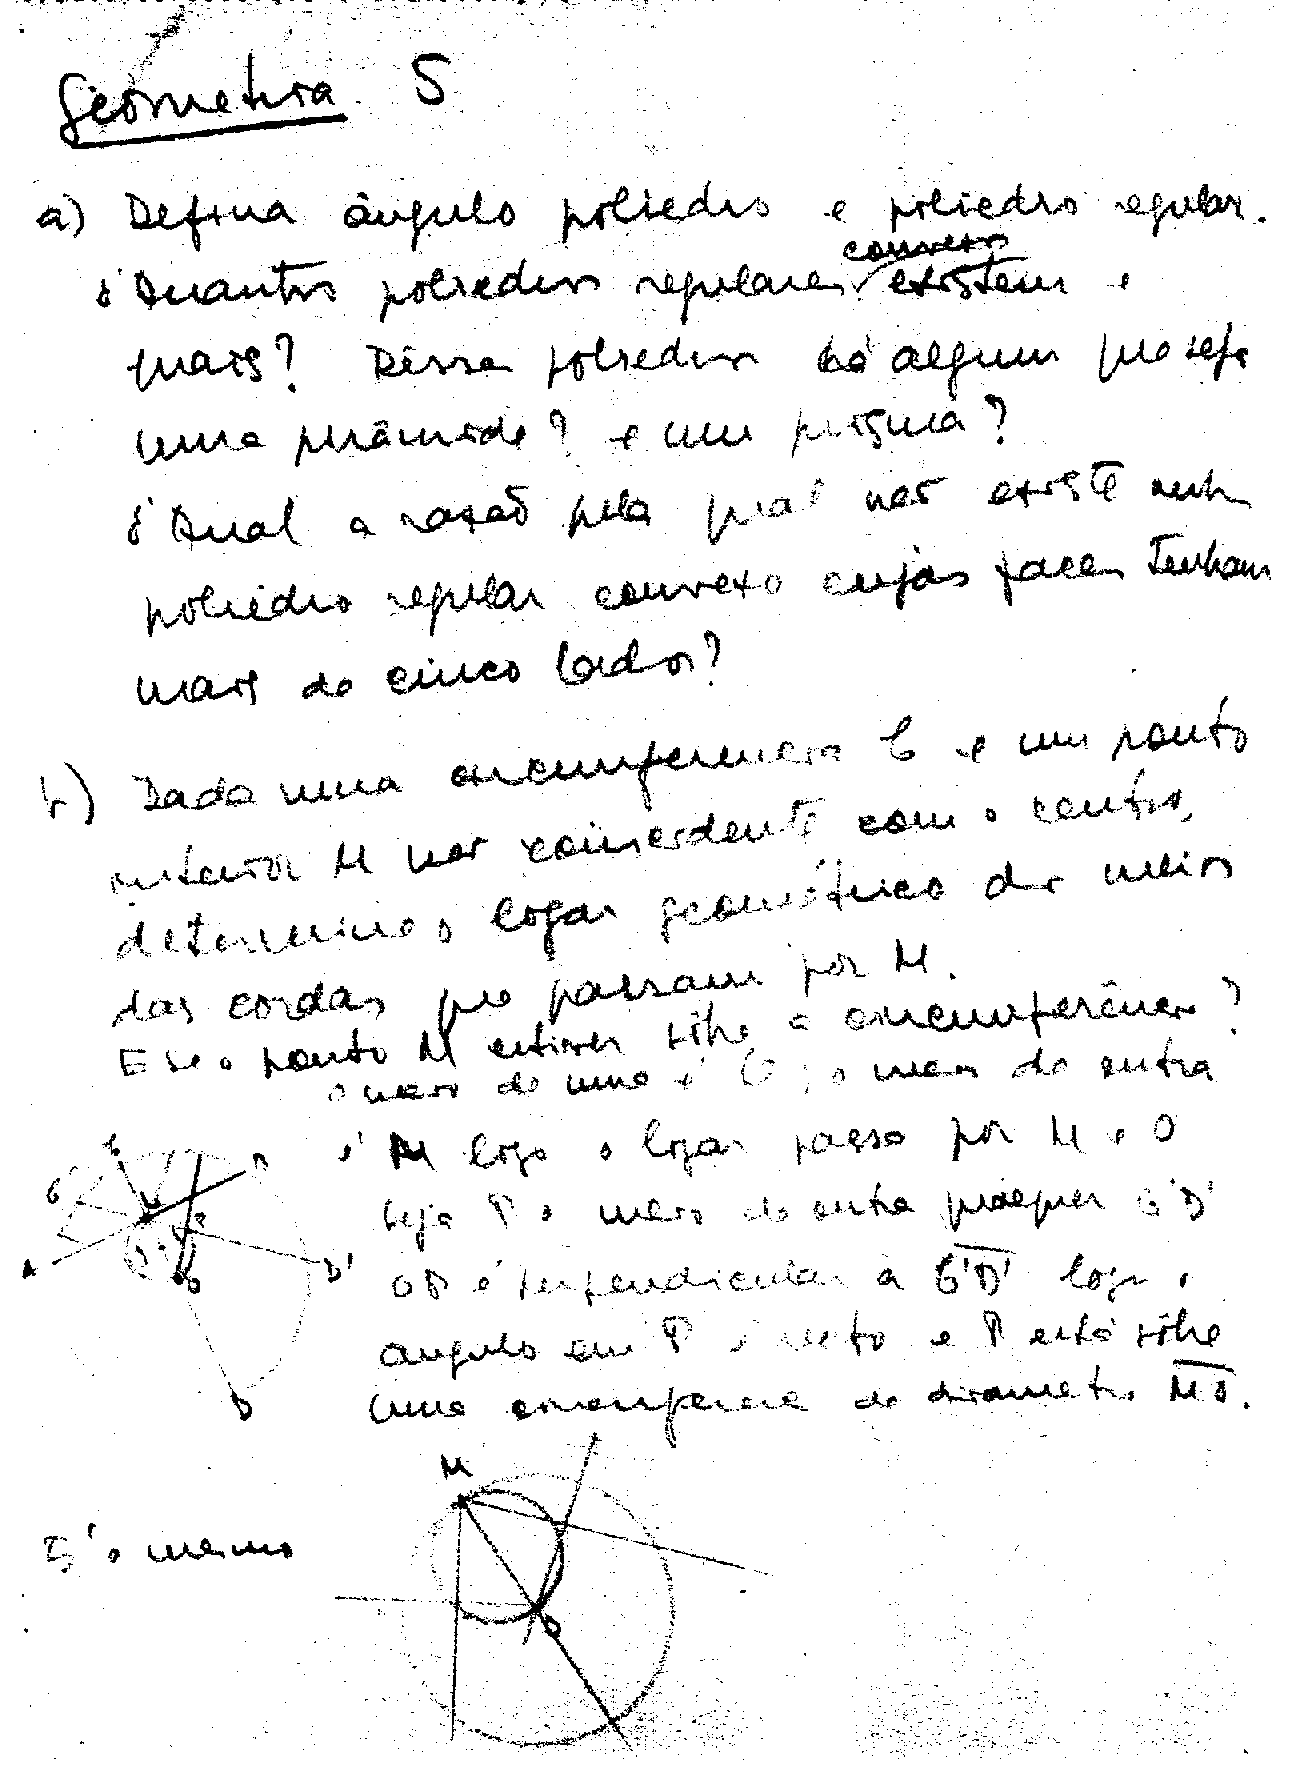 Geometria 5
a) Defina ângulo poliedro e poliedro regular.
Quantos poliedros regulares convexos existem e
quais? Dêsses poliedros há algum que seja
uma pirâmide? e um prisma?
Qual a razão pela qual não existe nenh
poliedro regular convexo cujas faces tenham
mais de cinco lados?
b) Dada uma circunferencia C e um ponto
interior M não coincidente com o centro,
determine o logar geométrico dos meios
das cordas que passam por M.
E se o ponto M estiver sôbre a circunferência?
o meio de uma é O; o meio de outra
é M logo o logar passa por M e O
seja P o meio de outra qualquer C'D'
OP é perpendicular a C'D' logo o
angulo em P é reto e P está sôbre
uma circunferencia de diametro MO.
A
D'
O
D
M
É o mesmo
O